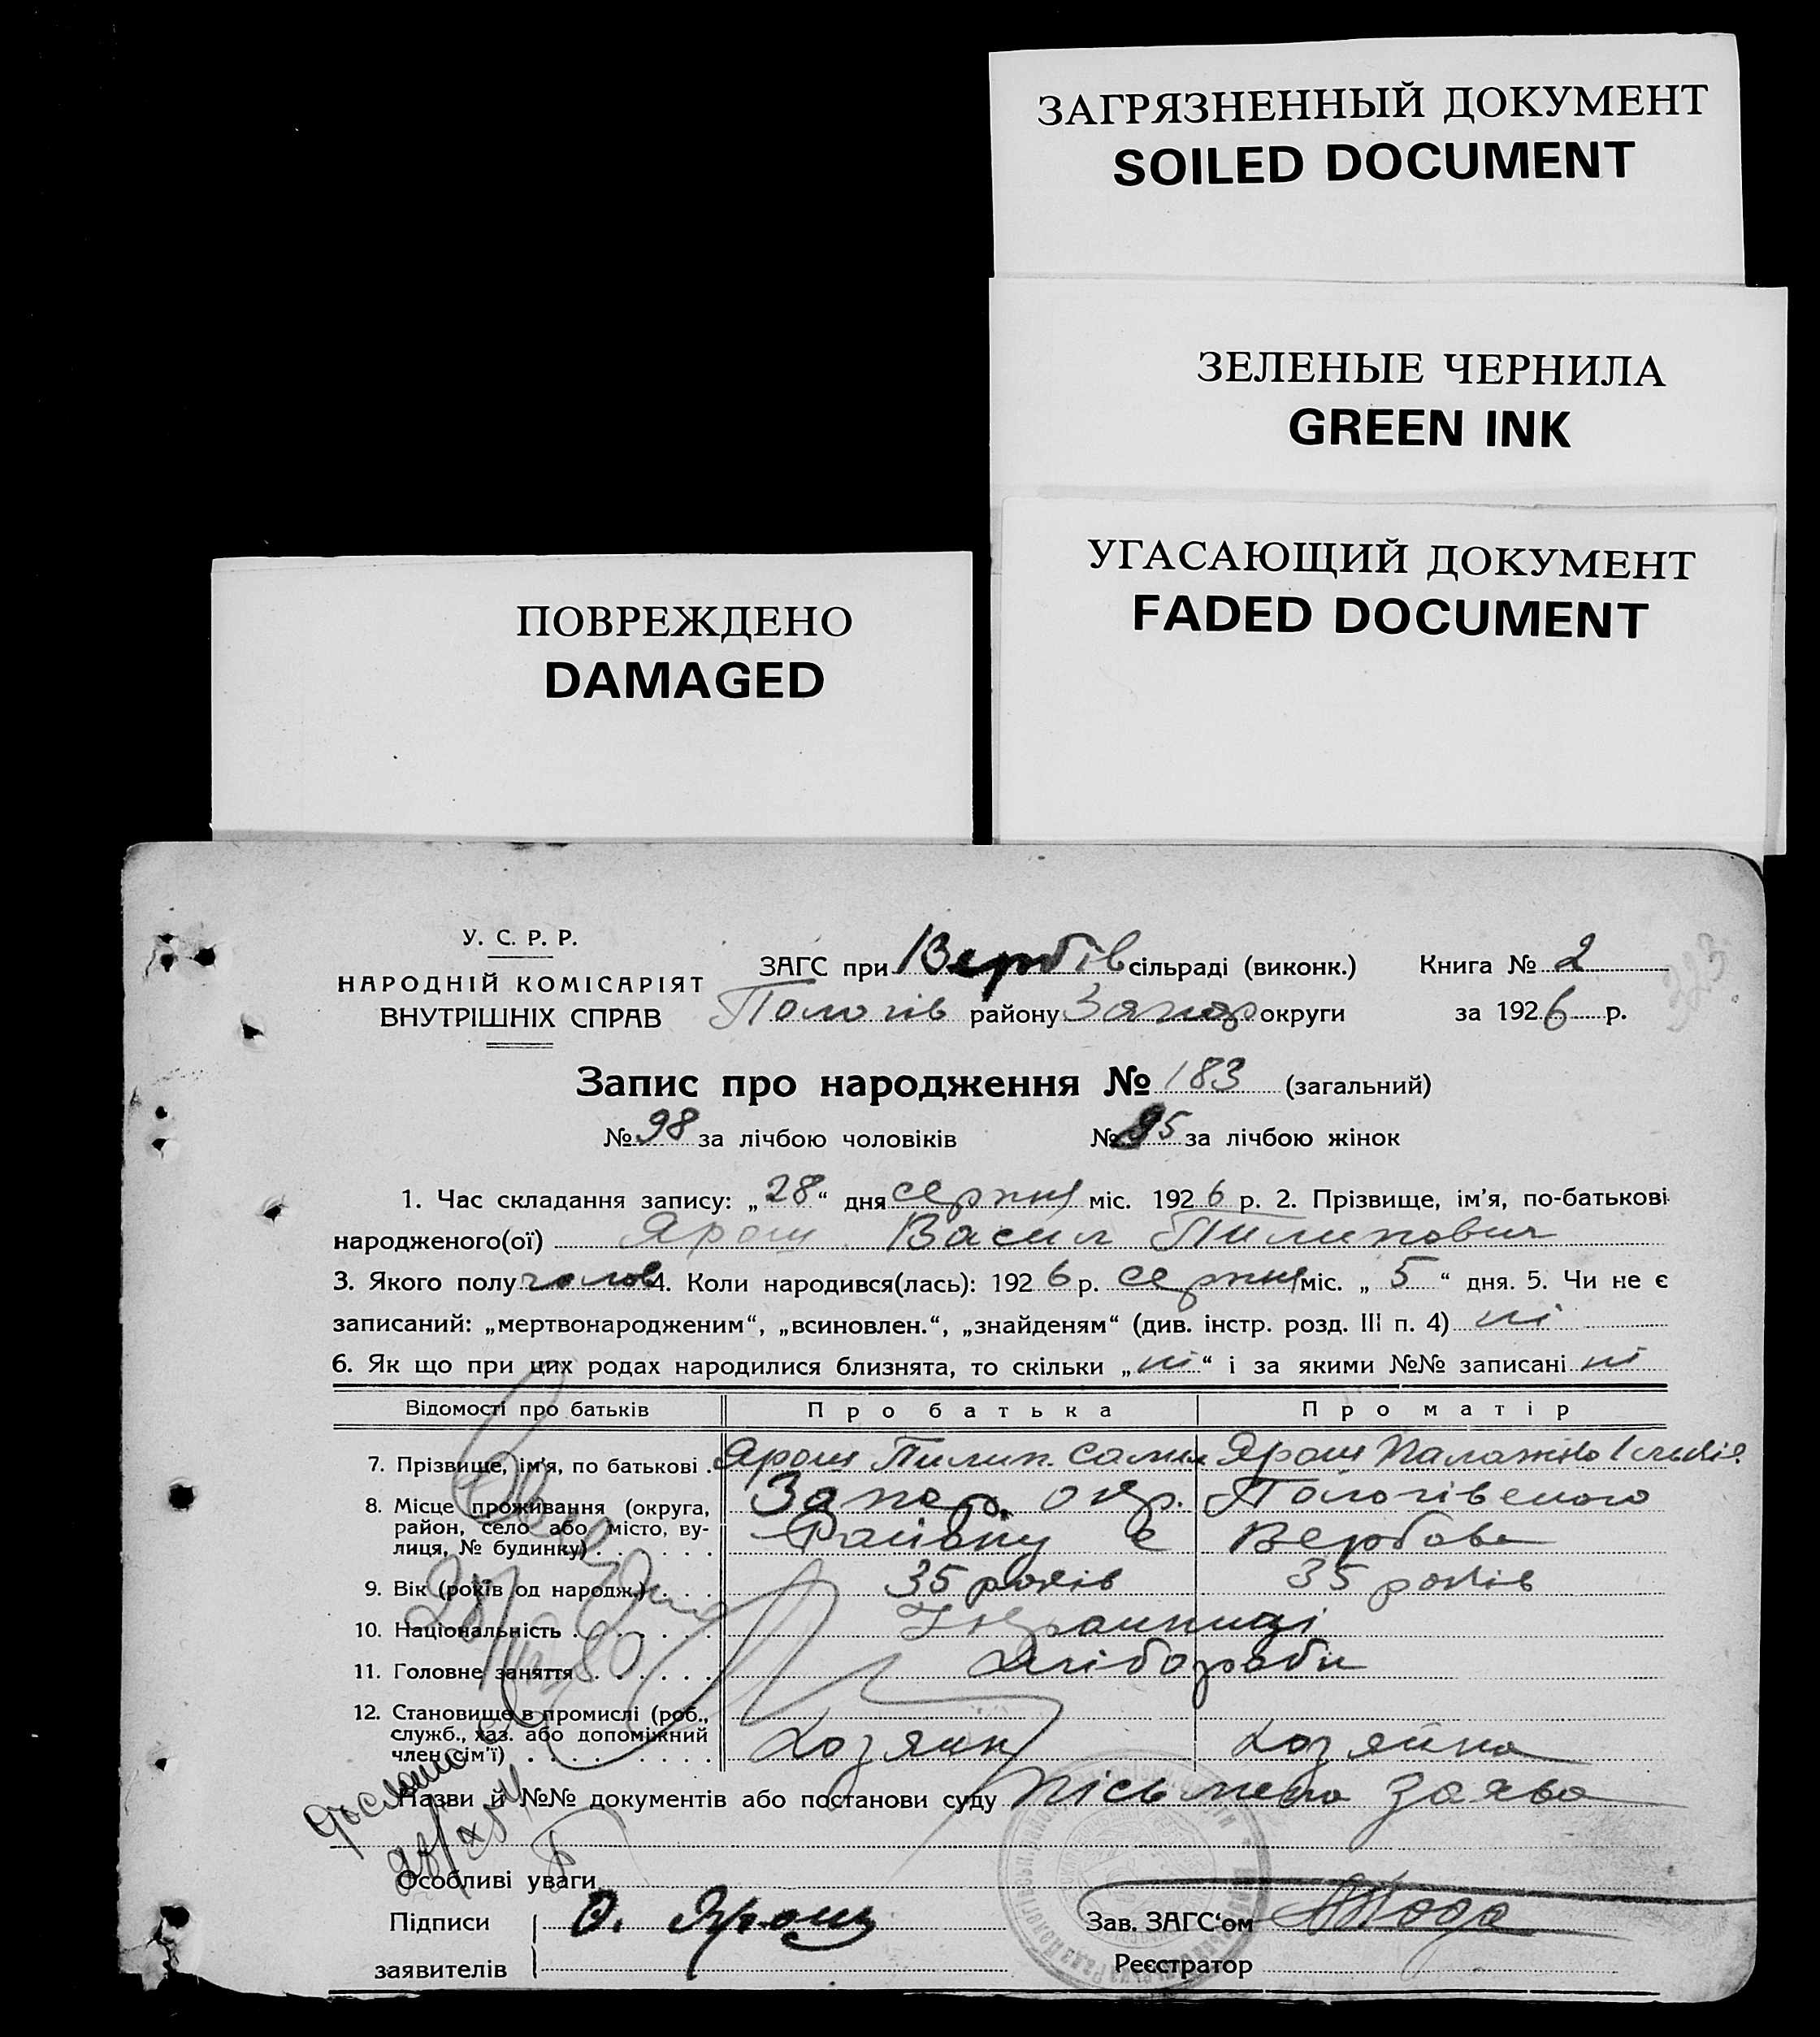 ЗАГРЯЗНЕННЫЙ ДОКУМЕНТ
SOILED DOCUMENT
ЗЕЛЕНЫЕ ЧЕРНИЛА
GREEN INK
УГАСАЮЩИЙ ДОКУМЕНТ
FADED DOCUMENT
ПОВРЕЖДЕНО
DAMAGED
У. С. Р. Р.
НАРОДНІЙ КОМІСАРІЯТ
ВНУТРІШНІХ СПРАВ
ЗАГС при Вербів сільраді (виконк.) Книга № 2
Пологів району Запор округи за 1926 р.
323
Запис про народження № 183 (загальний)
№ 98 за лічбою чоловіків № 85 за лічбою жінок
1. Час складання запису: „28“ дня серпня міс. 1926 р. 2. Прізвище, ім’я, по-батькові
народженого(ої) Ярош Васил Пилипович
3. Якого полу чолов 4. Коли народився(лась): 1926 р. серпня міс. „5“ дня. 5. Чи не є
записаний: „мертвонародженим“, „всиновлен.“, „знайденям“ (див. інстр. розд. III п. 4) ні
6. Як що при цих родах народилися близнята, то скільки „ні“ і за якими №№ записані ні
Відомості про батьків Про батька Про матір
7. Прізвище, ім’я, по батькові . Ярош Пилип Ярош
8. Місце проживання (округа, Запор. окр. Пологівского
район, село або місто, ву-
лиця, № будинку) . . . . . . Району с Вербове
9. Вік (років од народж.) . . . 35 років 35 років
10. Національність . . . . . . . Українці
11. Головне заняття . . . . . . Хлібороби
12. Становище в промислі (роб.,
служб., хаз. або допоміжний
член сім’ї) . . . . . . . . . . Хозяин Хозяйка
Назви й №№ документів або постанови суду Письмена заява
Особливі уваги
Підписи Ярош Зав. ЗАГС‘ом
заявителів Реєстратор